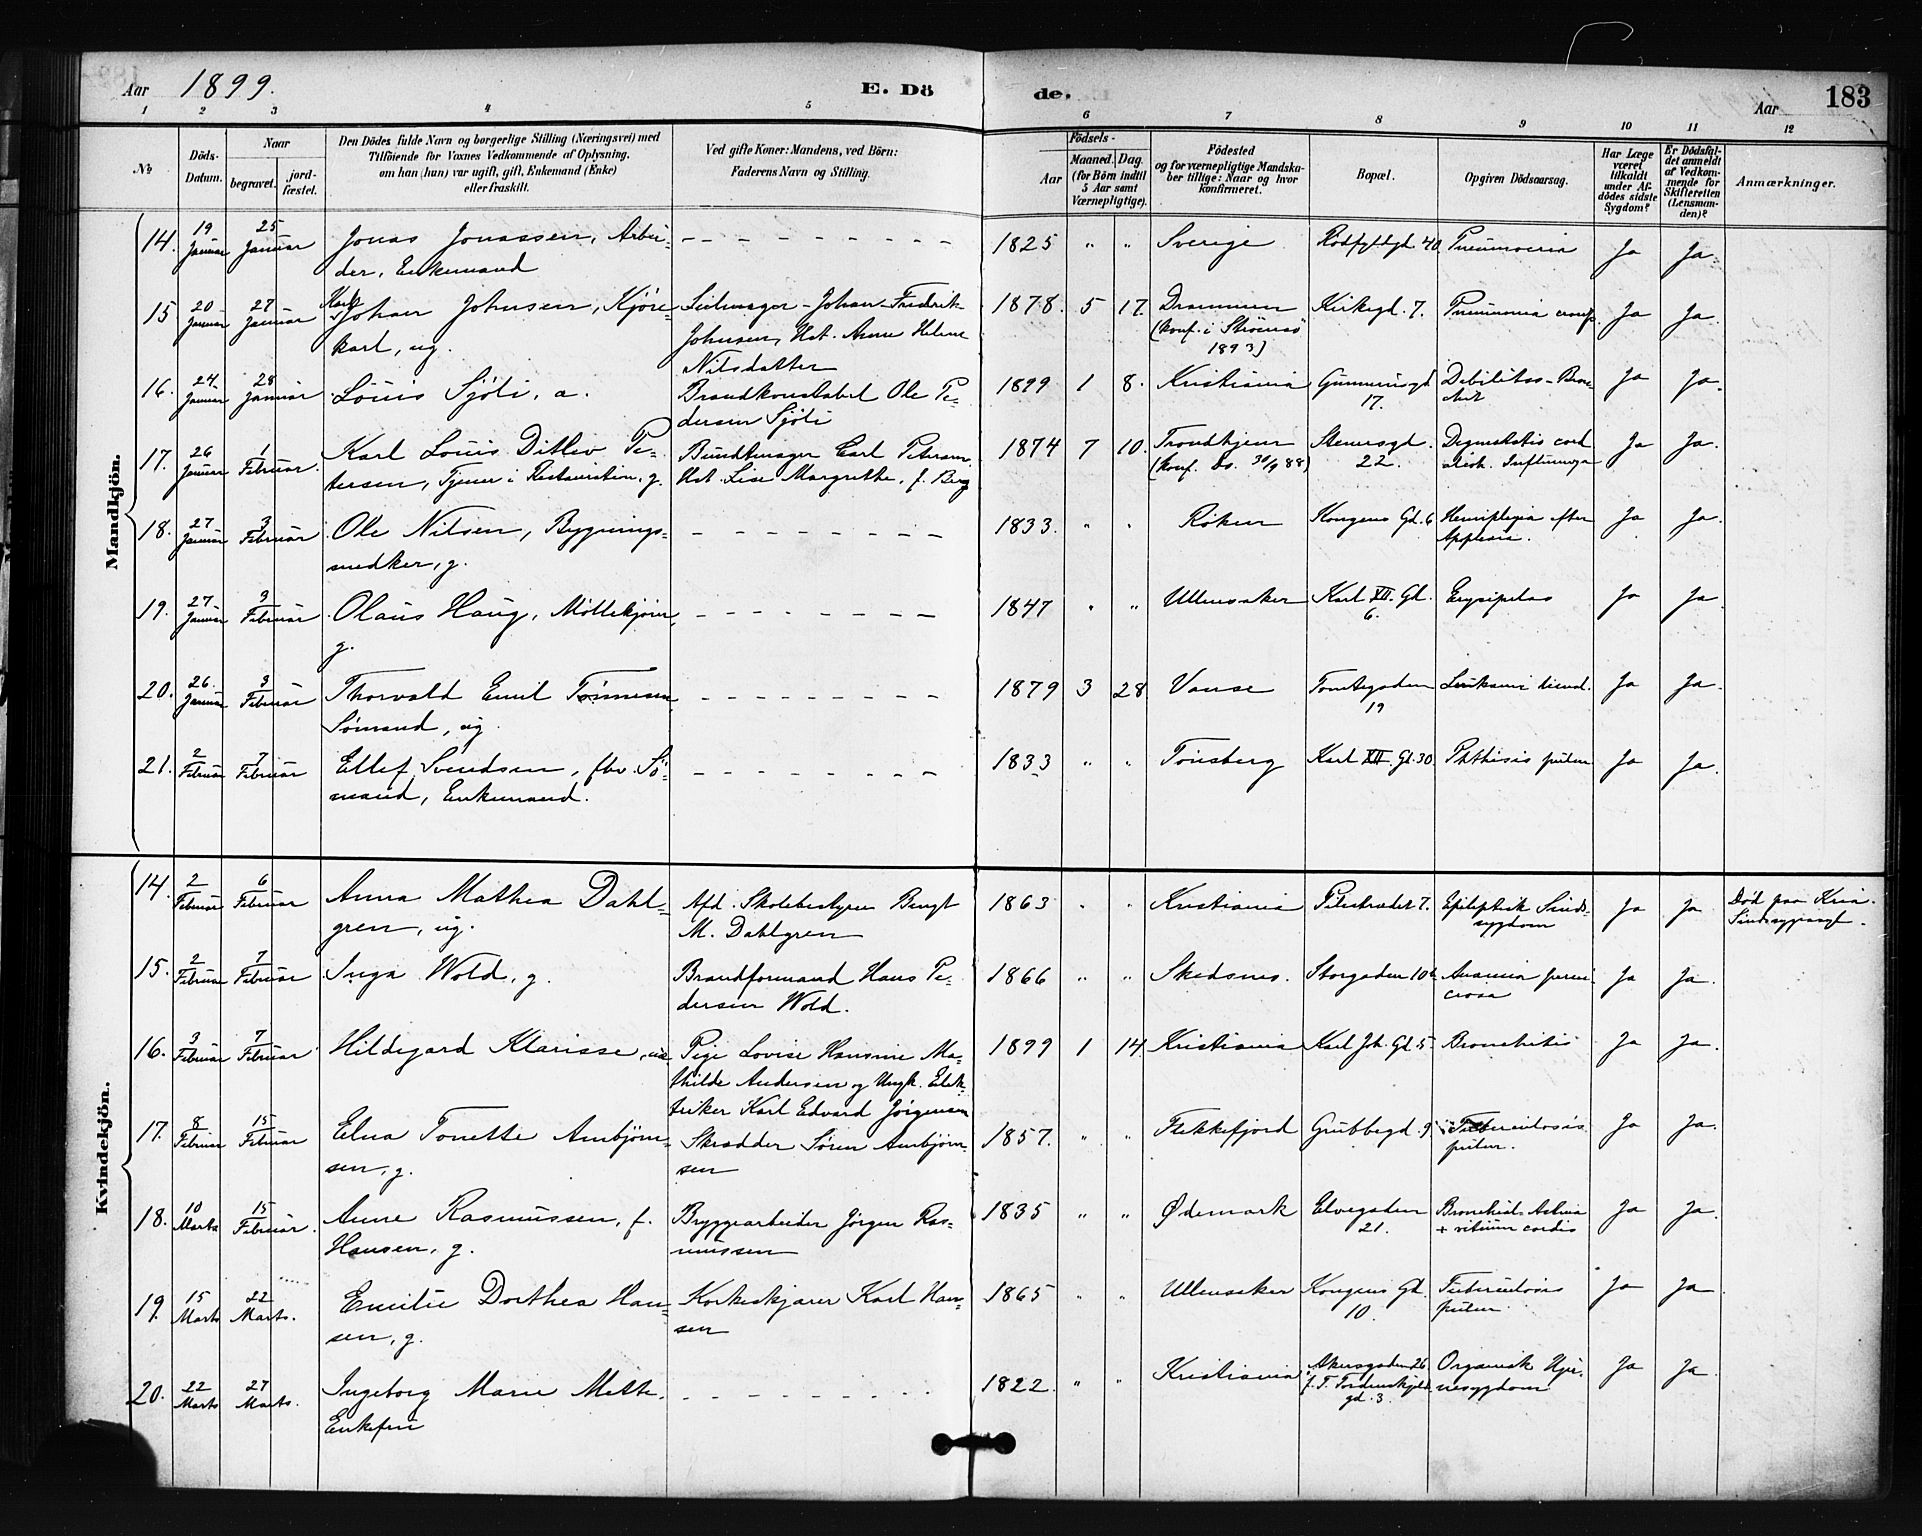 Aar 1899. E. Dö de. Aar 183
1 2 3 4 5 6 7 8 9 10 11 12
No
Döds-Datum.
Naar
begravet.
jord-fæstet.
Den Dödes fulde Navn og borgerlige Stilling (Næringsvei) med
Tilföiende for Voxnes Vedkommende af Oplysning,
om han (hun) var ugift, gift, Enkemand (Enke)
eller fraskilt.
Ved gifte Koner: Mandens, ved Börn:
Faderens Navn og Stilling.
Födsels-
Aar
Maaned.
Dag.
(for Börn indtil
5 Aar samt
Værnepligtige).
Födested
og for værnepligtige Mandska-
ber tillige: Naar og hvor
konfirmeret.
Bopæl.
Opgiven Dödsaarsag.
Har Læge
været
tilkaldt
under Af-
dödes sidste
Sygdom?
Er Dödsfal-
det anmeldt
af Vedkom-
mende for
Skifteretten
(Lensman-
den)?
Anmærkninger.
Mandkjön.
14. 19 Januar 25 Januar Jonas Jonassen, Arbei- 1825 " " Sverige 40 Pneumonia Ja Ja.
der, Enkemand
15 20 Januar 27 Januar Karl Johan Johnsen, Kjøre- Seilmager Johan Fredrik 1878. 5 17. Drammen Kirkegd. 7. Pneumonia Ja Ja.
karl, ug. Johnsen, Hst. Anne Helene (konf. i Strømsø
Nilsdatter 1893)
16. 24 Januar 28 Januar Louis Sjöli, a. Brandkonstabel Ole Pe- 1899 1 8. Kristiania 17. Debilitas Ja Ja.
dersen Sjöli
17. 26 Januar 1 Februar. Karl Louis Ditlev Pe- Bundtmager Carl Petersen 1874 7 10. Trondhjem Stenersgd. 22. Ja Ja.
tersen, Tjener i Restauration, g. Hst. Lise Margrethe, f. Berg (konf. Ds. 30/9 88)
18. 27 Januar 3 Februar Ole Nilsen, Bygnings- 1833. " " Röken Kongens Gd. 6 Hemiplegia efter Ja Ja.
snedker, g. Applexia.
19. 27 Januar 3 Februar Olaus Haug, 1847 " " Ullensaker Karl XII. Gd. 6. Erysipelas Ja Ja.
g.
20. 26. Januar 3 Februar Thorvald Emil Tönnesen 1879 3 28 Vanse Tomtegaden 19 Ja Ja.
Sömand, ug.
21. 2 Februar 7 Februar Ellef Svendsen, fhv. Sö- 1833 " " Tönsberg Karl XII. Gd. 30 Phthisis pulm Ja Ja.
mand, Enkemand.
Kvindekjön.
14. 2 Februar 6 Februar Anna Mathea Dahl- Afd. Skolebestyrer Bengt 1863 " " Kristiania Pilestrædet 7. Epileptisk Sinds- Ja Ja Død paa Kria.
gren, ug. M. Dahlgren sygdom Sindssygeasyl.
15. 2 Februar 7 Februar Inga Wold, g. Brandformand Hans Pe- 1866 " " Skedsmo. Storgaden 10 Anæmia perni- Ja Ja.
dersen Wold. ciosa
16. 3 Februar 7 Februar Hildegard Klarisse, Pige Lovise Hansine Ma- 1899 1 14 Kristiania Karl Joh. Gd. 5 Bronchitis Ja Ja.
thilde Andersen og Ungk. Elek-
triker Karl Edvard Jörgensen
17. 8 Februar 15 Februar Elna Tonette Ambjörn- Skrædder Sören Ambjörn- 1857. " " Flekkefjord Grubbegd. 9 Tuberculosis Ja Ja.
sen, g. sen pulm.
18. 10 Marts 15 Februar. Anne Rasmussen, f. Bryggearbeider Jörgen Ras- 1835 " " Ødemark Elvegaden 21. Bronchial Astma Ja Ja.
Hansen, g. mussen + vitium cordis
19. 15 Marts 22 Marts. Emilie Dorthea Han- Korkeskjærer Karl Han- 1865 " " Ullensaker Kongens Gd. 10. Tuberculosis Ja Ja
sen, g. sen pulm.
20. 22 Marts 27 Marts. Ingeborg Marie Mette. 1822. " " Kristiania Akersgaden 26 Organisk Hjer- Ja Ja.
Enkefru f. T. Tordenskjolds tesygdom
gd. 3.